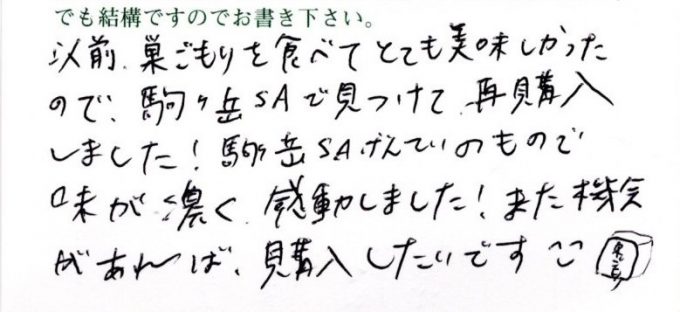 でも結構ですのでお書き下さい。
以前、巣ごもりを食べてとても美味しかった
ので、駒ヶ岳SAで見つけて再購入
しました!駒ヶ岳SAげんていのもので
味が濃く、感動しました!また機会
があれば、購入したいです